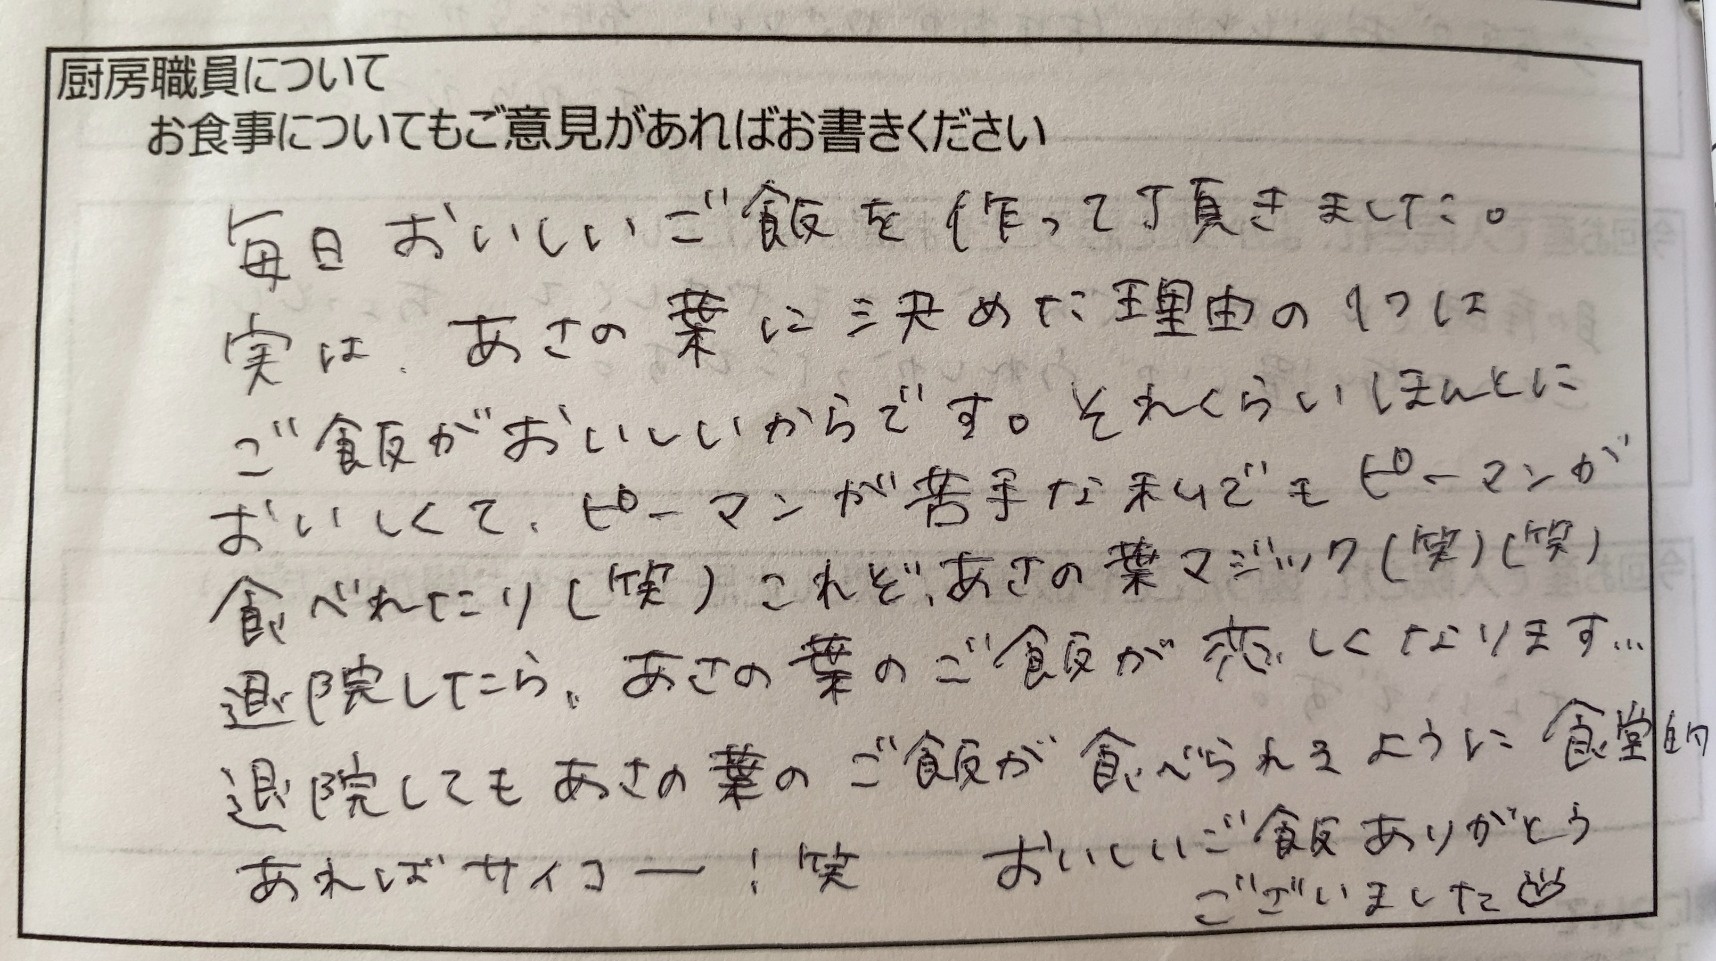 厨房職員について
お食事についてもご意見があればお書きください
毎日おいしいご飯を作って頂きました。
実は、あさの葉に決めた理由の1つは
ご飯がおいしいからです。それくらいほんとに
おいしくて、ピーマンが苦手な私でもピーマンが
食べれたり(笑)これぞ、あさの葉マジック(笑)(笑)
退院したら、あさの葉のご飯が恋しくなります…
退院してもあさの葉のご飯が食べられるように食堂的
あればサイコー!笑 おいしいご飯ありがとう
ございました